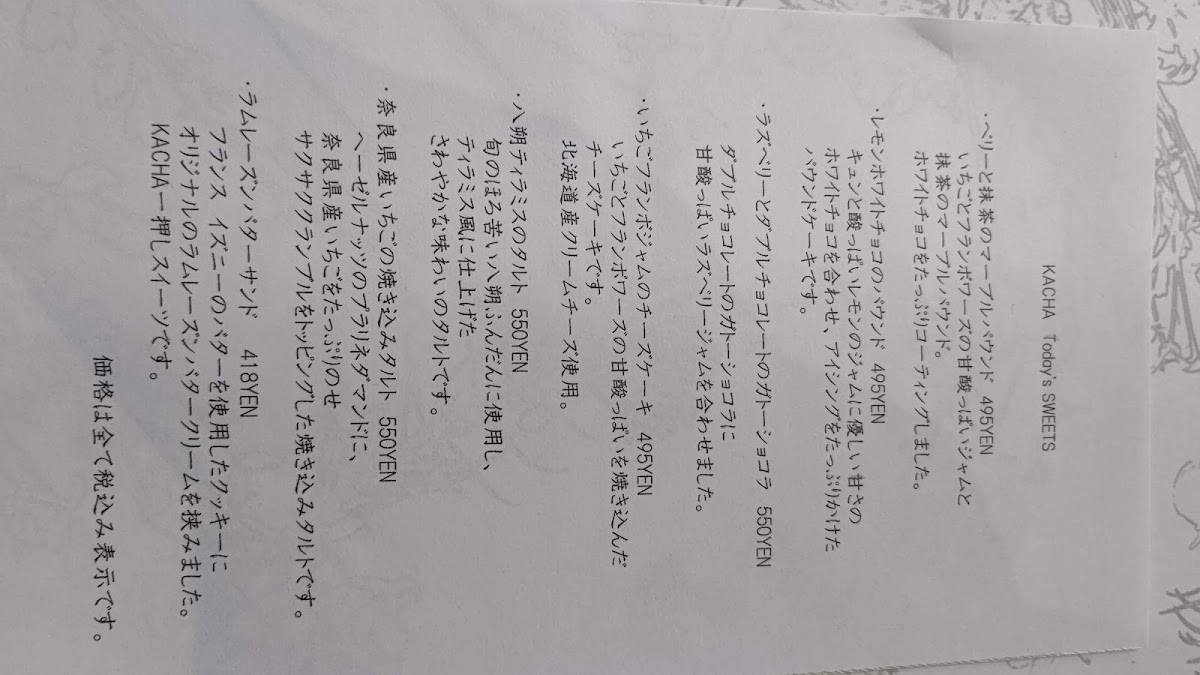 KACHA Today's SWEETS
・ベリーと抹茶のマーブルパウンド 495YEN
いちごとフランボワーズの甘酸っぱいジャムと
抹茶のマーブルパウンド。
ホワイトチョコをたっぷりコーティングしました。
・レモンホワイトチョコのパウンド 495YEN
キュンと酸っぱいレモンのジャムに優しい甘さの
ホワイトチョコを合わせ、アイシングをたっぷりかけた
パウンドケーキです。
・ラズベリーとダブルチョコレートのガトーショコラ 550YEN
ダブルチョコレートのガトーショコラに
甘酸っぱいラズベリージャムを合わせました。
・いちごフランボジャムのチーズケーキ 495YEN
いちごとフランボワーズの甘酸っぱいを焼き込んだ
チーズケーキです。
北海道産クリームチーズ使用。
・八朔ティラミスのタルト 550YEN
旬のほろ苦い八朔ふんだんに使用し、
ティラミス風に仕上げた
さわやかな味わいのタルトです。
・奈良県産いちごの焼き込みタルト 550YEN
ヘーゼルナッツのプラリネダマンドに、
奈良県産いちごをたっぷりのせ
サクサククランブルをトッピングした焼き込みタルトです。
・ラムレーズンバターサンド 418YEN
フランス イズニーのバターを使用したクッキーに
オリジナルのラムレーズンバタークリームを挟みました。
KACHA一押しスイーツです。
価格は全て税込み表示です。